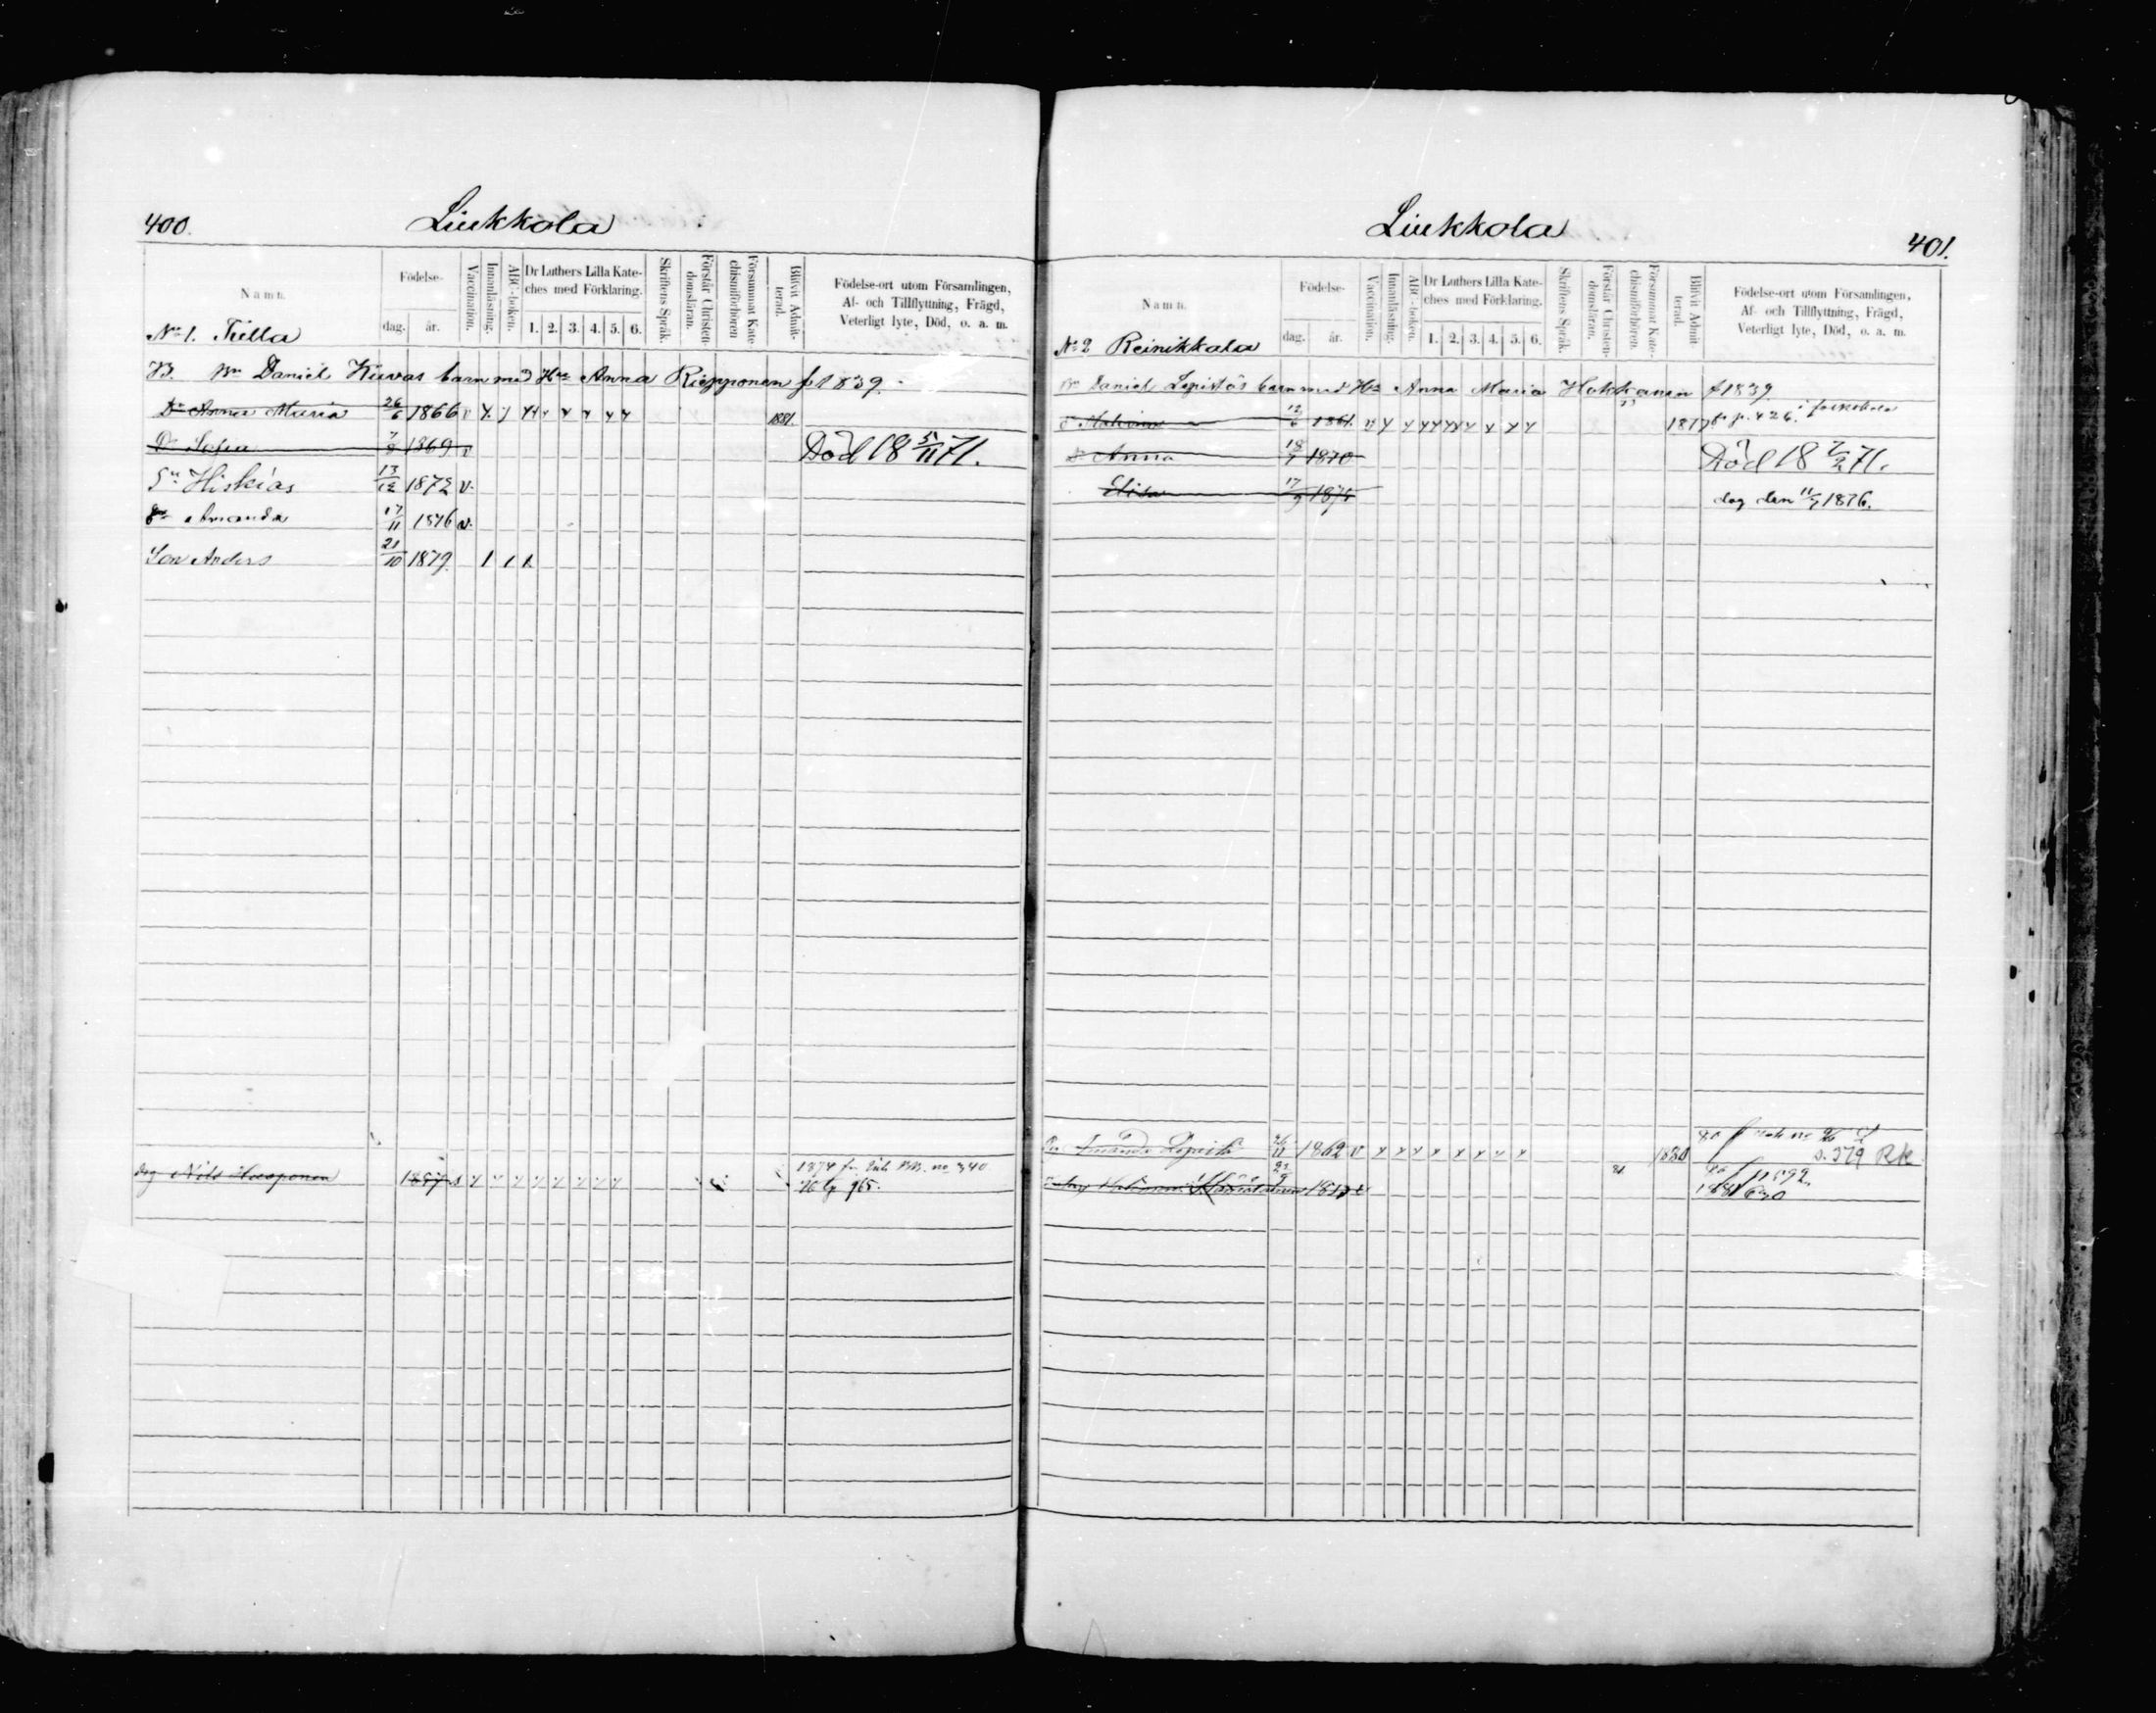 400.
Liukkola
Namn.
Födelse-
dag. år.
Vaccination.
Innanläsning.
ABC-boken.
Dr Luthers Lilla Kate-
ches med Förklaring.
1. 2. 3. 4. 5. 6.
Skriftens Språk.
Förstår Christen-
domsläran.
Försummat Kate-
chismiförhören
Blifvit Admit-
terad.
Födelse-ort utom Församlingen,
Af- och Tillflyttning, Frägd,
Veterligt lyte, Död, o. a. m.
No 1. Tiilla
B. Bn Daniel Kiivas barn med Hu Anna Riepponen f 1839.
Dr Anna Maria 26/6 1866 v 1881.
Dr Sofia 7/9 1869 v Död 18 5/11 71.
Sn Hiskias 13/12 1872 v.
Dr Amanda 17/11 1876 v.
Son Anders 21/10 1879. 1 1 1
drg Nils 1857 s 1874 fr no 340
76 965.
Liukkola
401.
Namn.
Födelse-
dag. år.
Vaccination.
Innanläsning.
ABC-boken.
Dr Luthers Lilla Kate-
ches med Förklaring.
1. 2. 3. 4. 5. 6.
Skriftens Språk.
Förstår Christen-
domsläran.
Försummat Kate-
chismiförhören.
Blifvit Admit
terad.
Födelse-ort utom Församlingen,
Af- och Tillflyttning, Frägd,
Veterligt lyte, Död, o. a. m.
No 2 Reinikkala
Bn Daniel Lepistös barn med Hu Anna Maria Hakkanen f 1839
12/6 1861. v 1877 p. 426.
Dr Anna 18/7 1870 Död 18 7/2 71.
Elisa 17/9 1875 dog den 11/7 1876.
Amanda Lepistö 26/11 1862 v 1880 s. 379 RK